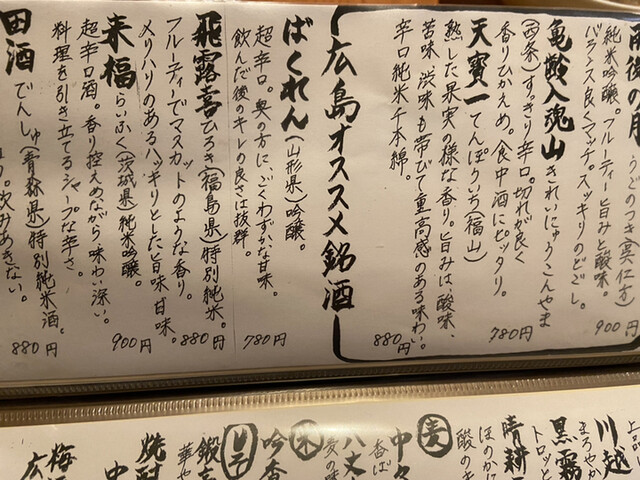 雨後の月 うごのつき(呉仁方)
純米吟醸。フルーティー旨みと酸味。
バランス良くマッチ。スッキリのどごし。
900円
亀齢入魂山 きれいにゅうこんやま
(西条)すっきり辛口。切れが良く
香りひかえめ。食中酒にピッタリ。
780円
天寳一 てんぽういち(福山)
熟した果実の様な香り。旨みは、酸味、
苦味、渋味も帯びて重高感のある味わい。
辛口純米千本錦。
880円
広島オススメ銘酒
ばくれん(山形県)吟醸。
超辛口。奥の方に、ごくわずかな甘味。
飲んだ後のキレの良さは抜群。
780円
飛露喜 ひろき(福島県)特別純米。
フルーティーでマスカットのような香り。
メリハリのあるハッキリとした旨味甘味。
880円
来福 らいふく(茨城県)純米吟醸。
超辛口酒。香り控えめながら味わい深い。
料理を引き立てるシャープな辛さ。
900円
田酒 でんしゅ(青森県)特別純米酒。
飲みあきない。
880円
上品
川越
まろやか
黒霧
トロッと
晴耕
ほのかに
酸のキ
麦
中々
香ば
八丈
愛の味
米
吟香
鍛高
華や
焼酎
中
梅酒
広